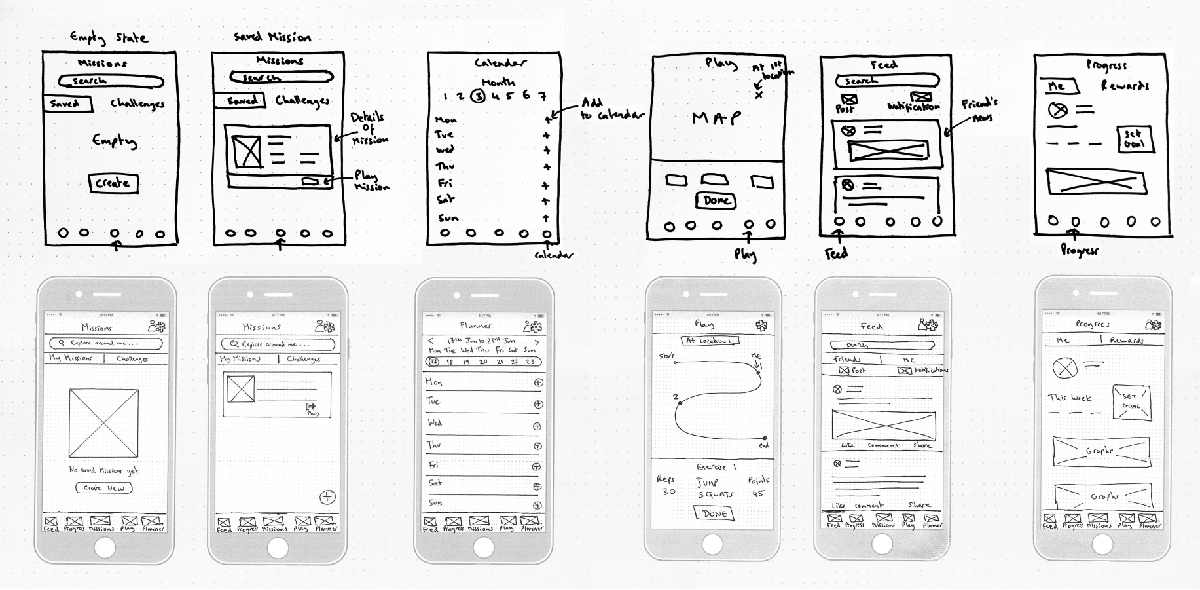 Empty State
Missions
Search
Saved Challenges
Empty
Create
Saved Mission
Missions
Search
Saved Challenges
Details
Of
Mission
Play
Mission
Calendar
Month
1 2 3 4 5 6 7
Mon +
Tue +
Wed +
Thu +
Fri +
Sat +
Sun +
Add
to calendar
Calendar
Play
At 1st
location
x
MAP
DONE
Play
Feed
Search
Post Notification
Friend's
news
Feed
Progress
Me Rewards
Set
Goal
Progress
Missions
My Missions Challenges
Create New
Feed Progress Missions Play Planner
Missions
My Missions Challenges
Play
+
Feed Progress Missions Play Planner
Planner
< >
Mon Tue Wed Thu Fri Sat Sun
18 19 20 21 22 23
Mon +
Tue +
Wed +
Thu +
Fri +
Sat +
Sun +
Feed Progress Missions Play Planner
Play
At Location 1
Start
2
end
Exercise 1
Reps JUMP Points
30 SQUATS 45
DONE
Feed
Friends Me
Post Notifications
Like Comment Share
Like Comment Share
Feed Progress Missions Play Planner
Progress
Me Rewards
This Week SET
GOAL
Graphs
Graphs
Feed Progress Missions Play Planner